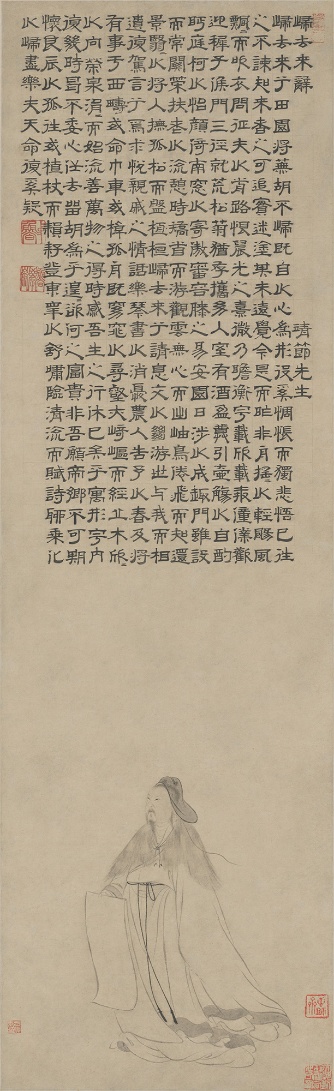 歸去來辭　靖節先生
歸去來兮田園將蕪胡不歸既自以心為形役奚惆悵而獨悲悟已往
之不諫知來者之可追寔迷塗其未遠覺今是而昨非舟搖以輕颺風
飄〻而吹衣問征夫以前路恨晨光之熹微乃瞻衡宇載欣載奔僮僕歡
迎稺子候門三徑就荒松菊猶存攜幼入室有酒盈尊引壺觴以自酌
眄庭柯以怡顏倚南窗以寄傲審容膝之易安園日涉以成趣門雖設
而常關策扶老以流憩時矯首而游觀雲無心而出岫鳥倦飛而知還
景翳〻以將入撫孤松而盤桓歸去來兮請息交以絕游世與我而相
遺復駕言兮焉求悅親戚之情話樂琴書以消憂農人告予以春及將
有事于西疇或命巾車或棹孤舟既窈窕以尋壑亦崎嶇而經丘木欣〻
以向榮泉涓〻而始流善萬物之得時感吾生之行休已矣乎寓形宇內
復幾時曷不委心任去留胡為乎遑〻欲何之富貴非吾願帝鄉不可期
懷良辰以孤往或植杖而耘耔登東皋以舒嘯臨清流而賦詩聊乘化
以歸盡樂夫天命復奚疑